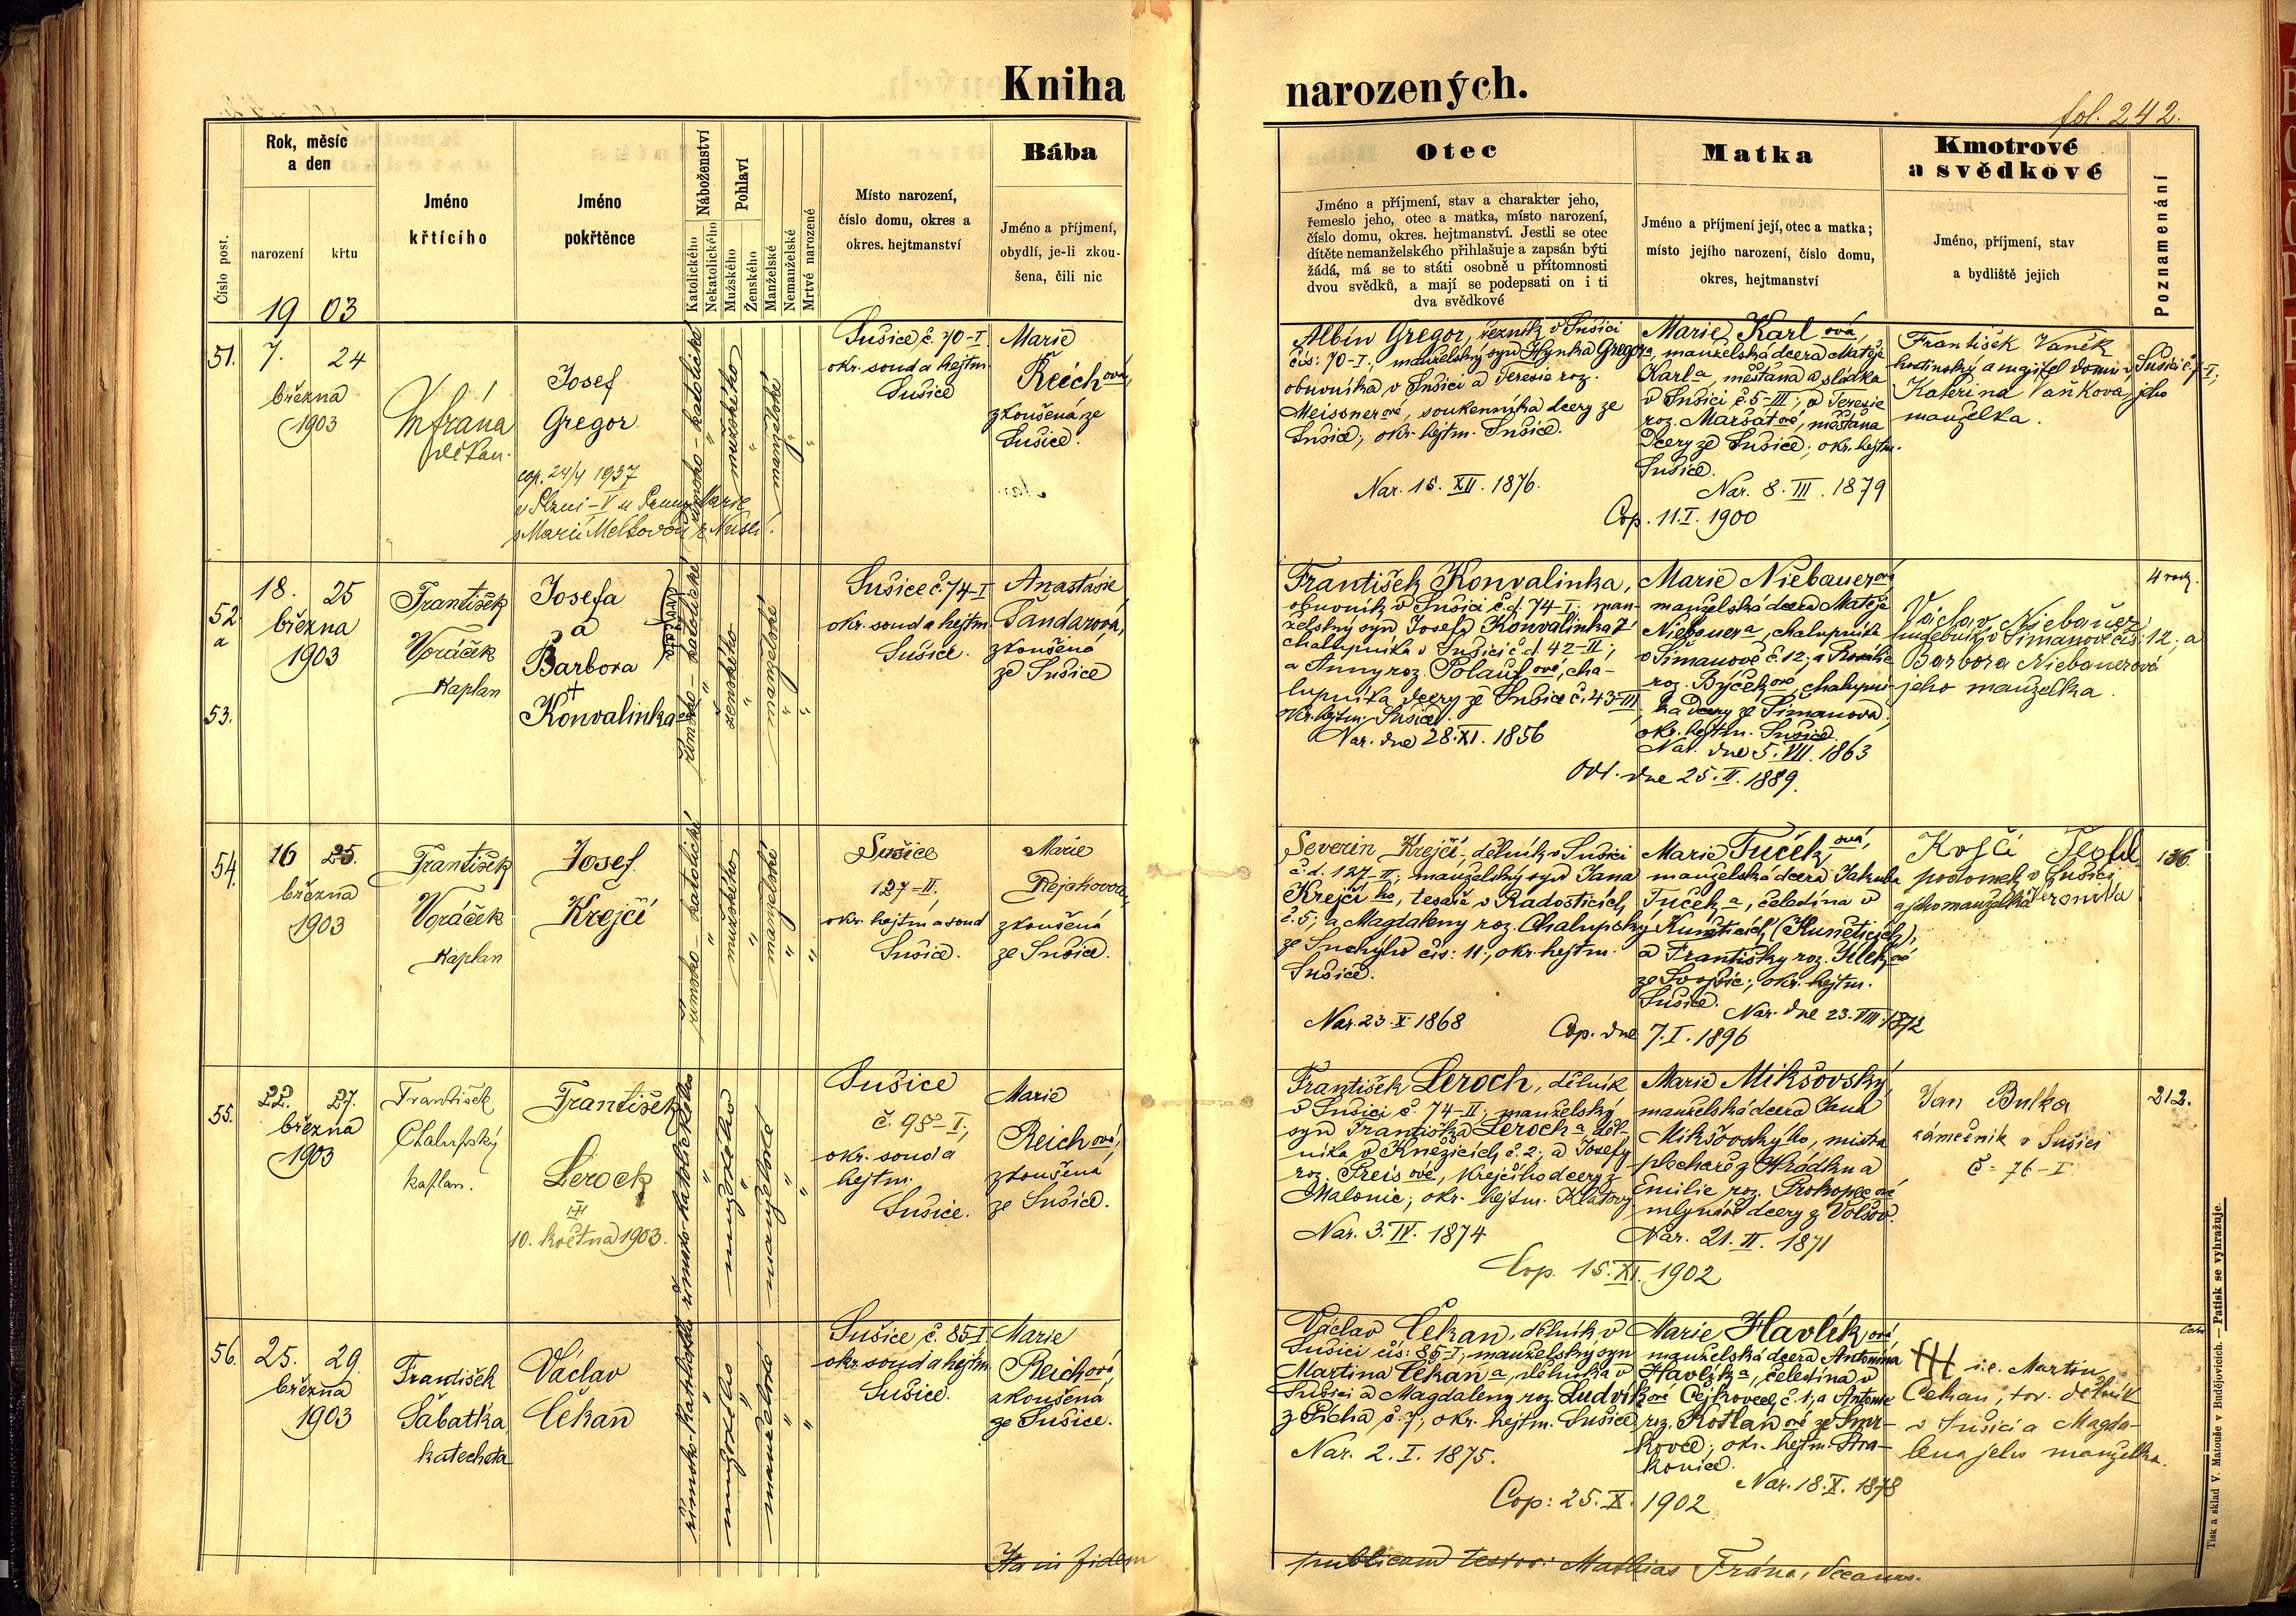 Kniha narozených.
fol. 242.
Rok, měsíc
a den
narození
křtu
19 03
Číslo post.
Jméno
křtícího
Jméno
pokřtěnce
Náboženství
Katolického
Nekatolického
Pohlaví
Mužského
Ženského
Manželské
Nemanželské
Mrtvé narozené
Místo narození,
číslo domu, okres a
okres. hejtmanství
Bába
Jméno a příjmení,
obydlí, je-li zkou-
šena, čili nic
Otec
Jméno a příjmení, stav a charakter jeho,
řemeslo jeho, otec a matka, místo narození,
číslo domu, okres. hejtmanství. Jestli se otec
dítěte nemanželského přihlašuje a zapsán býti
žádá, má se to státi osobně u přítomnosti
dvou svědků, a mají se podepsati on i ti
dva svědkové
Matka
Jméno a příjmení její, otec a matka;
místo jejího narození, číslo domu,
okres, hejtmanství
Kmotrové
a svědkové
Jméno, příjmení, stav
a bydliště jejich
Poznamenání
51.
7. 24
března
1903
Mfrána
děkan.
Josef
Gregor
cop. 24/4 1937
v Plzni-V u Panny Marie
s Marií
římsko-katolické
mužského
manželské
Sušice č. 70-I
okr. soud a hejtm.
Sušice
Marie
Reichová,
zkoušená ze
Sušice.
Albín Gregor, řezník v Sušici
čís: 70-I.; manželský syn Hynka Gregora,
obuvníka v Sušici a Terezie roz.
Meissnerové, soukenníka dcery ze
Sušice; okr. hejtm. Sušice.
Nar. 15. XII. 1876.
Marie Karlová,
manželská dcera Matěje
Karla, měšťana a sládka
v Sušici č. 5-III; a Terezie
roz. Maršátové, měšťana
dcery ze Sušice; okr. hejtm.
Sušice.
Nar. 8. III. 1879
Cop. 11. I. 1900
František Vaněk
hodinský a majitel domu v Sušici č. 7-I;
Kateřina Vaňkova, jeho
manželka.
52
a
53.
18. 25
března
1903
František
Voráček
Kaplan
Josefa
a
Barbora
†
Konvalinka
dvojčata
římsko-katolické
ženského
manželské
Sušice č. 74-I
okr. soud a hejtm.
Sušice.
Anastásie
Šandarová,
zkoušená
ze Sušice
František Konvalinka,
obuvník v Sušici č.d. 74-I; man-
želský syn Josefa Konvalinka
chalupníka v Sušici č.d. 42-II;
a Anny roz. Polaufové, cha-
lupníka dcery ze Sušice č. 43-III
okr. hejtm. Sušice.
Nar. dne 28. XI. 1856
Marie Niebauerová
manželská dcera Matěje
Niebauera, chalupníka
v Šimanově č. 12; a Rosalie
roz. Býčkové, chalupní-
ka dcery ze Šimanova;
okr. hejtm. Sušice.
Nar. dne 5. VII. 1863
Odd. dne 25. II. 1889.
Václav Niebauer
hudebník v Šimanově čís: 12; a
Barbora Niebauerová
jeho manželka.
54.
16 25.
března
1903
František
Voráček
Kaplan
Josef
Krejčí
římsko-katolické
mužského
manželské
Sušice
127-II.
okr. hejtm. a soud
Sušice.
Marie
Rejchová
zkoušená
ze Sušice.
Severin Krejčí, dělník v Sušici
č.d. 127-II; manželský syn Jana
Krejčího, tesaře v Radosticích
č. 5; a Magdaleny roz. Chalupský
ze Suchýho čís: 11; okr. hejtm.
Sušice.
Nar. 23. X. 1868
Marie Tučková,
manželská dcera Jakuba
Tučeka, čeledína v
Kuněticích (Kuněticích);
a Františky roz.
ze Svojšic; okr. hejtm.
Sušice.
Nar. dne 23. VIII. 1872
Cop. dne 7. I. 1896
podomek v Sušici
a jeho manželka Veronika
136.
55.
22. 27.
března
1903
František
Chalupský
kaplan.
František
Leroch
10. května 1903.
římsko-katolického
mužského
manželské
Sušice
č. 98-I;
okr. soud a
hejtm.
Sušice.
Marie
Reichová,
zkoušená
ze Sušice.
František Leroch, dělník
v Sušici č. 74-II; manželský
syn Františka Lerocha děl-
níka v Kněžicích č. 2; a Josefy
roz. Preisové, krejčího dcery z
Malonic; okr. hejtm. Klatovy
Nar. 3. IV. 1874
Marie Mikšovský,
manželská dcera Jana
Mikšovskýho, mistra
plechaře z Hrádku a
Emilie roz. Prokopcové
mlynáře dcery z Volšov.
Nar. 21. II. 1871
Cop. 15. XI. 1902
Jan Bulka
zámečník v Sušici
č. 76-I
212.
56.
25. 29.
března
1903
František
Šabatka,
katecheta
Václav
Čekan
římsko-katolické
mužského
manželské
Sušice, č. 85-I.
okr. soud a hejtm.
Sušice.
Marie
Reichová,
zkoušená
ze Sušice.
Václav Čekan, dělník v
Sušici čís: 85-I; manželský syn
Martina Čekana, dělníka v
Sušici a Magdaleny roz. Ludvíkové
z Pícha č. 7; okr. hejtm. Sušice
Nar. 2. I. 1875.
Marie Havlíková
manželská dcera Antonína
Havlíka, čeledína v
Čejkovech č. 1; a Antonie
roz. Kotlanové ze Smr-
kovce; okr. hejtm. Stra-
konice.
Nar. 18. X. 1878
Cop: 25. X. 1902
††† i.e. Martin
Čekan, tov. dělník
v Sušici a Magda-
lena jeho manželka.
Ita in fidem publicam testor: Mathias Frána, Decanus.
Tisk a sklad V. Matouše v Budějovicích. — Patisk se vyhražuje.